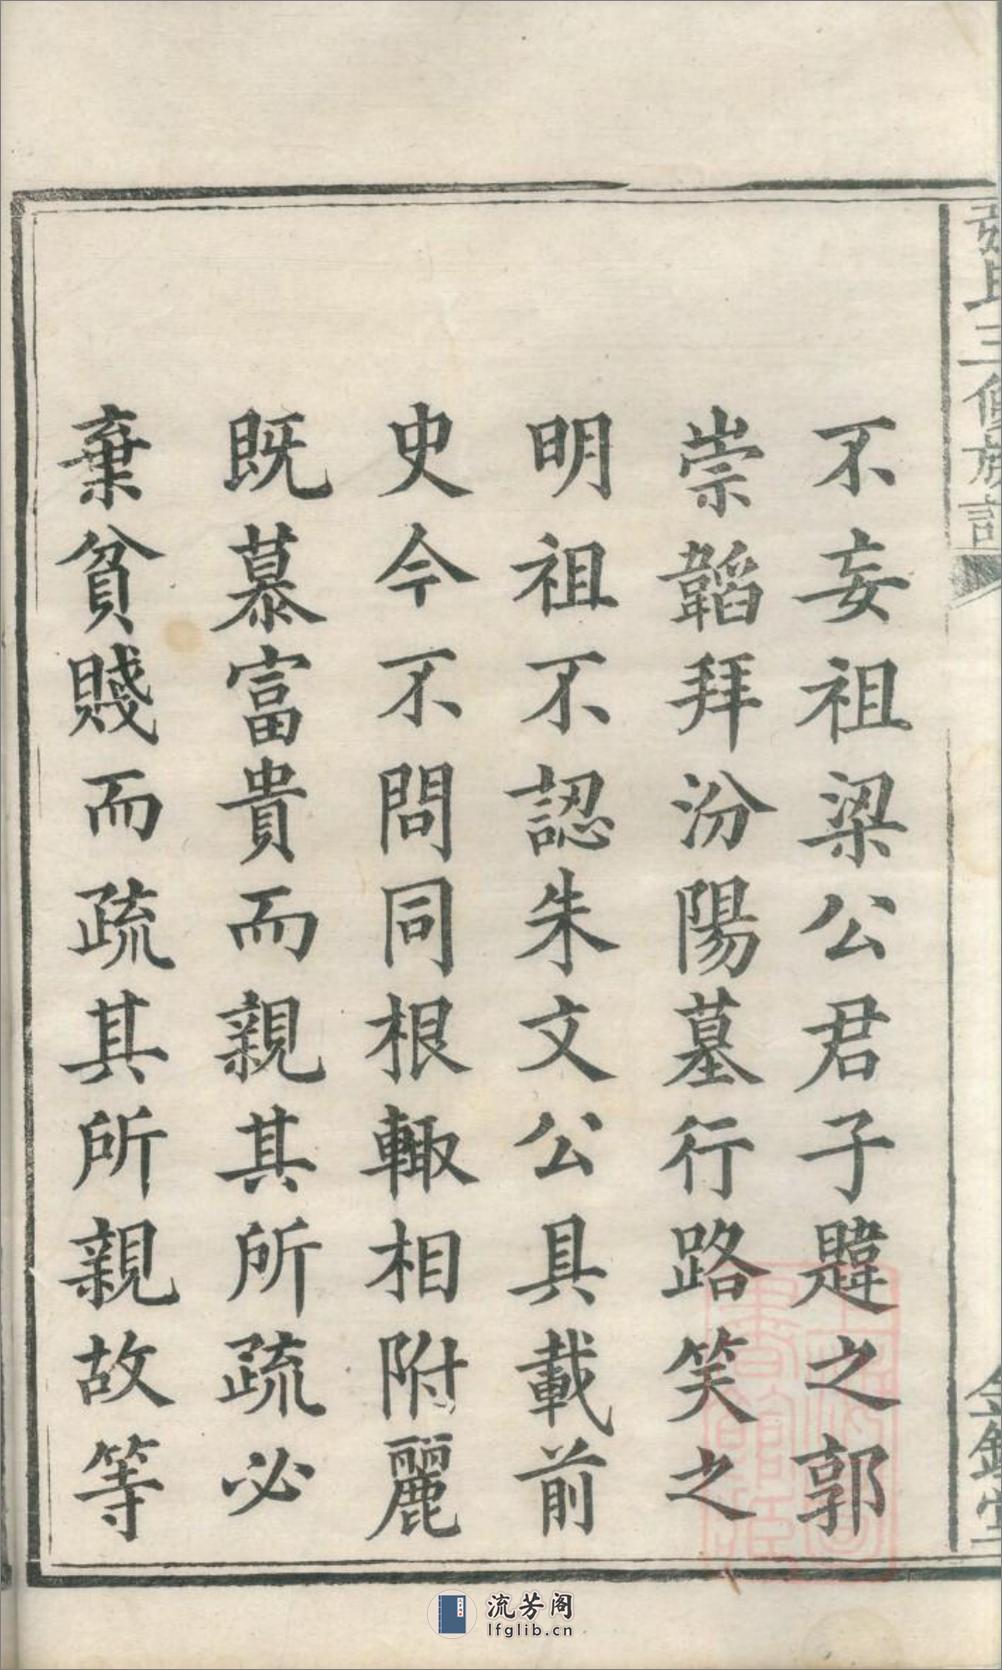 張氏三修族譜
金鑑堂
不妄祖梁公君子韙之郭
崇韜拜汾陽墓行路笑之
明祖不認朱文公具載前
史今不問同根輙相附麗
既慕富貴而親其所疏必
棄貧賤而疏其所親故等
流芳阁
lfglib.cn